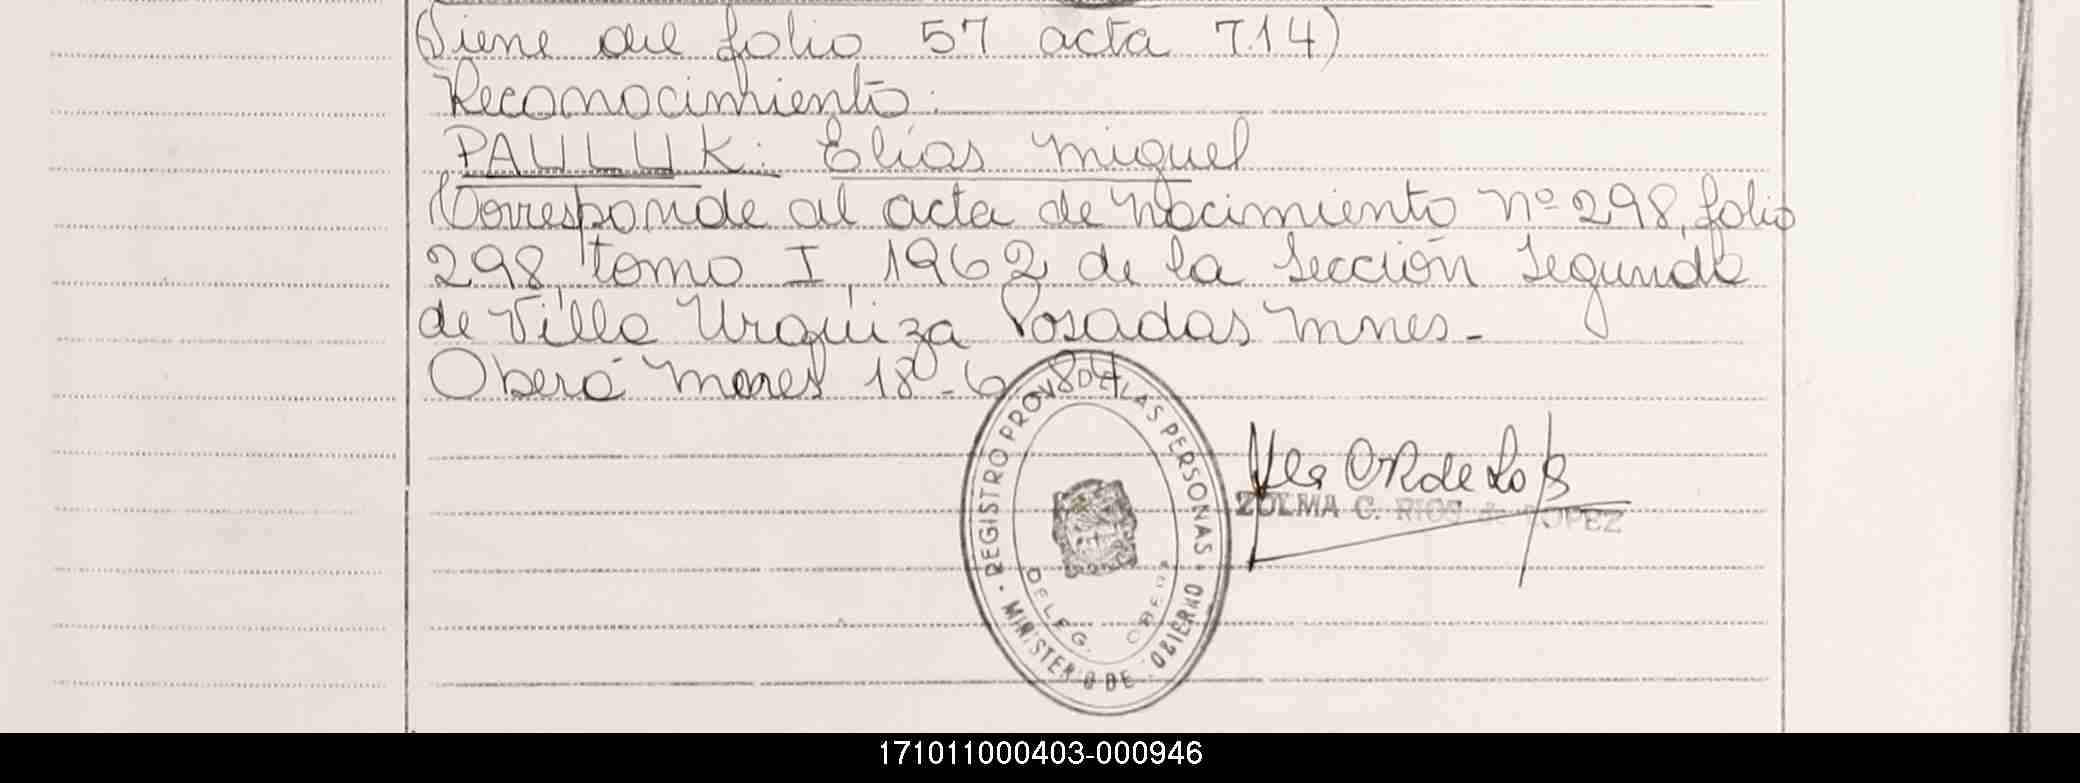 (Viene del folio 57 acta 714)
Reconocimiento:
PAULUK: Elías Miguel
Corresponde al acta de nacimiento nº 298, folio
298, tomo I, 1962 de la Sección Segunda
de Villa Urquiza Posadas Mnes-
Oberá 18-6-84
REGISTRO PROV. DE LAS PERSONAS
MINISTERIO DE GOBIERNO
DELEG. OBERA
ZULMA C. RIOS de LOPEZ
171011000403-000946